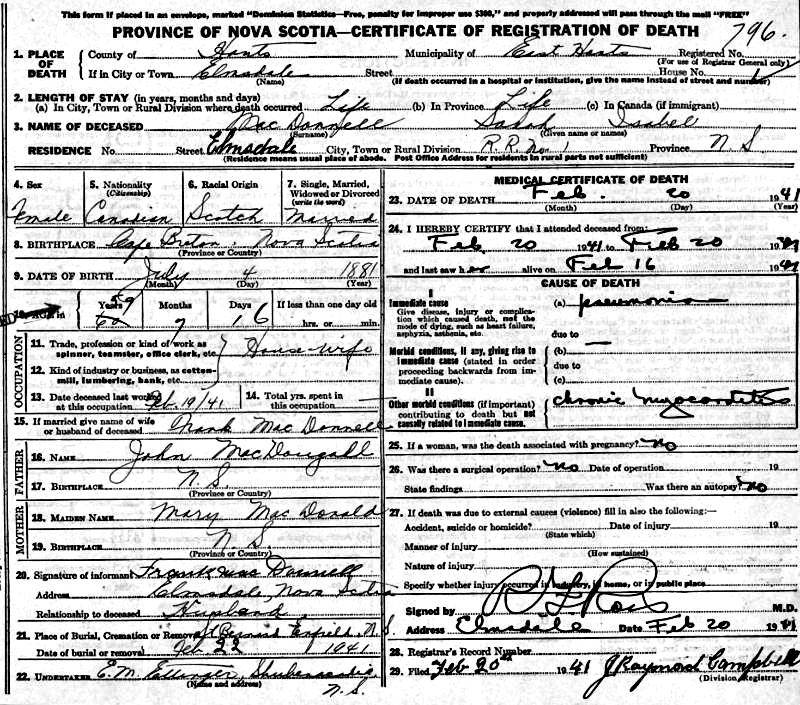 This form if placed in an envelope, marked "Dominion Statistics—Free, penalty for improper use $300," and properly addressed will pass through the mail "FREE"
PROVINCE OF NOVA SCOTIA—CERTIFICATE OF REGISTRATION OF DEATH 796.
1. PLACE OF DEATH County of Hants Municipality of East Hants Registered No.
(For use of Registrar General only)
If in City or Town Elmsdale Street House No.
(Name) (If death occurred in a hospital or institution, give the name instead of street and number)
2. LENGTH OF STAY (in years, months and days)
(a) In City, Town or Rural Division where death occurred Life (b) In Province Life (c) In Canada (if immigrant)
3. NAME OF DECEASED MacDonnell Sarah Isabel
(Surname) (Given name or names)
RESIDENCE No. Street Elmsdale City, Town or Rural Division R.R. No. 1 Province N S
(Residence means usual place of abode. Post Office Address for residents in rural parts not sufficient)
4. Sex 5. Nationality (Citizenship) 6. Racial Origin 7. Single, Married, Widowed or Divorced (write the word)
Female Canadian Scotch Married
8. BIRTHPLACE Cape Breton Nova Scotia
(Province or Country)
9. DATE OF BIRTH July 4 1881
(Month) (Day) (Year)
10. AGE in Years 59 60 Months 7 Days 16 If less than one day old
hrs. or min.
OCCUPATION
11. Trade, profession or kind of work as spinner, teamster, office clerk, etc. House-wife
12. Kind of industry or business, as cotton-mill, lumbering, bank, etc.
13. Date deceased last worked at this occupation Feb. 19/41 14. Total yrs. spent in this occupation
15. If married give name of wife or husband of deceased Frank MacDonnell
FATHER
16. NAME John MacDougall
17. BIRTHPLACE N. S.
(Province or Country)
MOTHER
18. MAIDEN NAME Mary MacDonald
19. BIRTHPLACE N. S
(Province or Country)
20. Signature of informant Frank MacDonnell
Address Elmsdale, Nova Scotia
Relationship to deceased Husband
21. Place of Burial, Cremation or Removal Enfield N. S
Date of burial or removal Feb 22 1941.
22. UNDERTAKER E. M. Ettinger, Shubenacadie
(Name and address) N.S.
MEDICAL CERTIFICATE OF DEATH
23. DATE OF DEATH Feb. 20 1941
(Month) (Day) (Year)
24. I HEREBY CERTIFY that I attended deceased from:
Feb 20 1941 to Feb 20 1941
and last saw her alive on Feb 16 1941
CAUSE OF DEATH
I
Immediate cause (a) pneumonia
Give disease, injury or complication which caused death, not the mode of dying, such as heart failure, asphyxia, asthenia, etc.
due to
Morbid conditions, if any, giving rise to immediate cause (stated in order proceeding backwards from immediate cause). (b)
due to
(c)
II
Other morbid conditions (if important) contributing to death but not causally related to immediate cause. chronic myocarditis
25. If a woman, was the death associated with pregnancy? no
26. Was there a surgical operation? no Date of operation 19
State findings Was there an autopsy? no
27. If death was due to external causes (violence) fill in also the following:—
Accident, suicide or homicide? Date of injury 19
(State which)
Manner of injury
(How sustained)
Nature of injury
Specify whether injury occurred in industry, in home, or in public place
Signed by R L Ross M.D.
Address Elmsdale Date Feb 20 1941
28. Registrar's Record Number
29. Filed Feb 20th 1941 J Raymond Campbell
(Division Registrar)